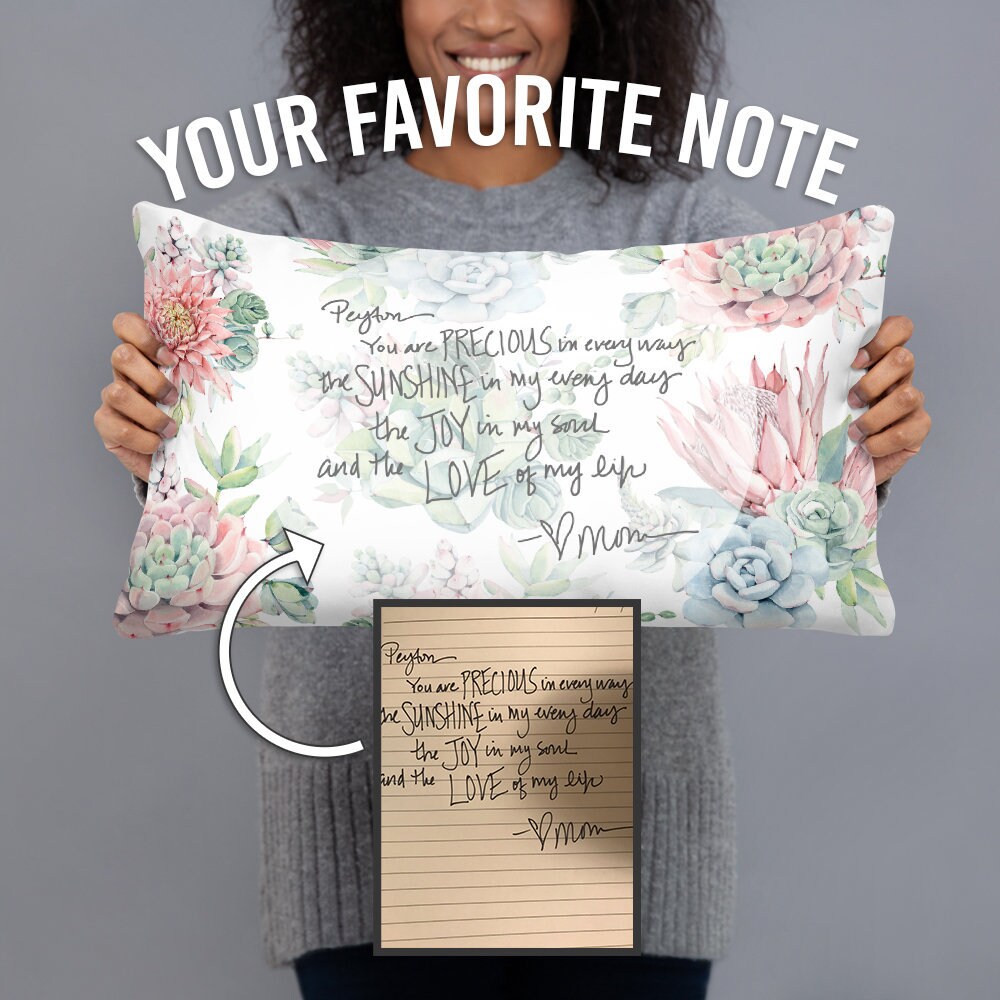 YOUR FAVORITE NOTE
Peyton
You are PRECIOUS in every way
the SUNSHINE in my every day
the JOY in my soul
and the LOVE of my life
-♡Mom
Peyton
You are PRECIOUS in every way
the SUNSHINE in my every day
the JOY in my soul
and the LOVE of my life
-♡Mom